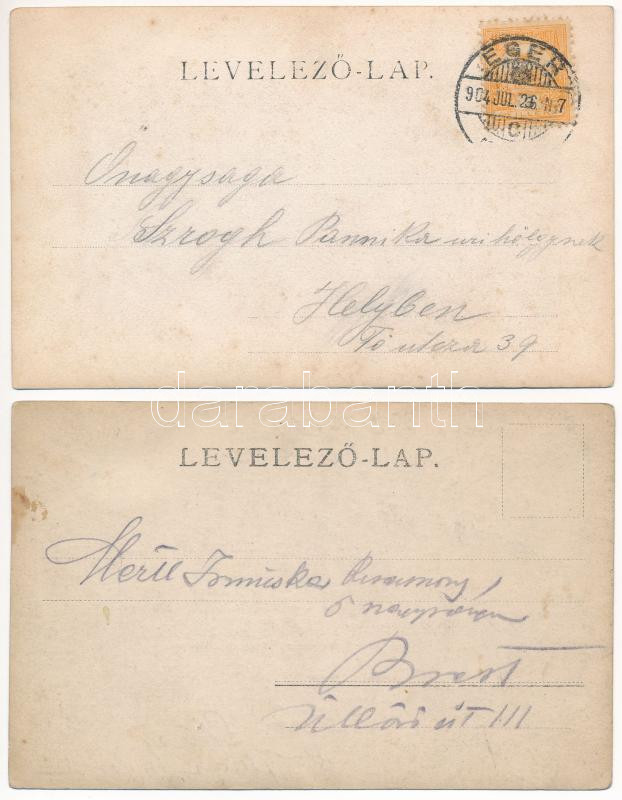 LEVELEZŐ-LAP.
EGER
904 JUL. 26. N.7
C
Őnagysága
Szrogh Pannika urihölgynek
Helyben
Fő utcza 39
darabanth
LEVELEZŐ-LAP.
Mertl Irmuska
nagysám
Bpest
Üllői út 111